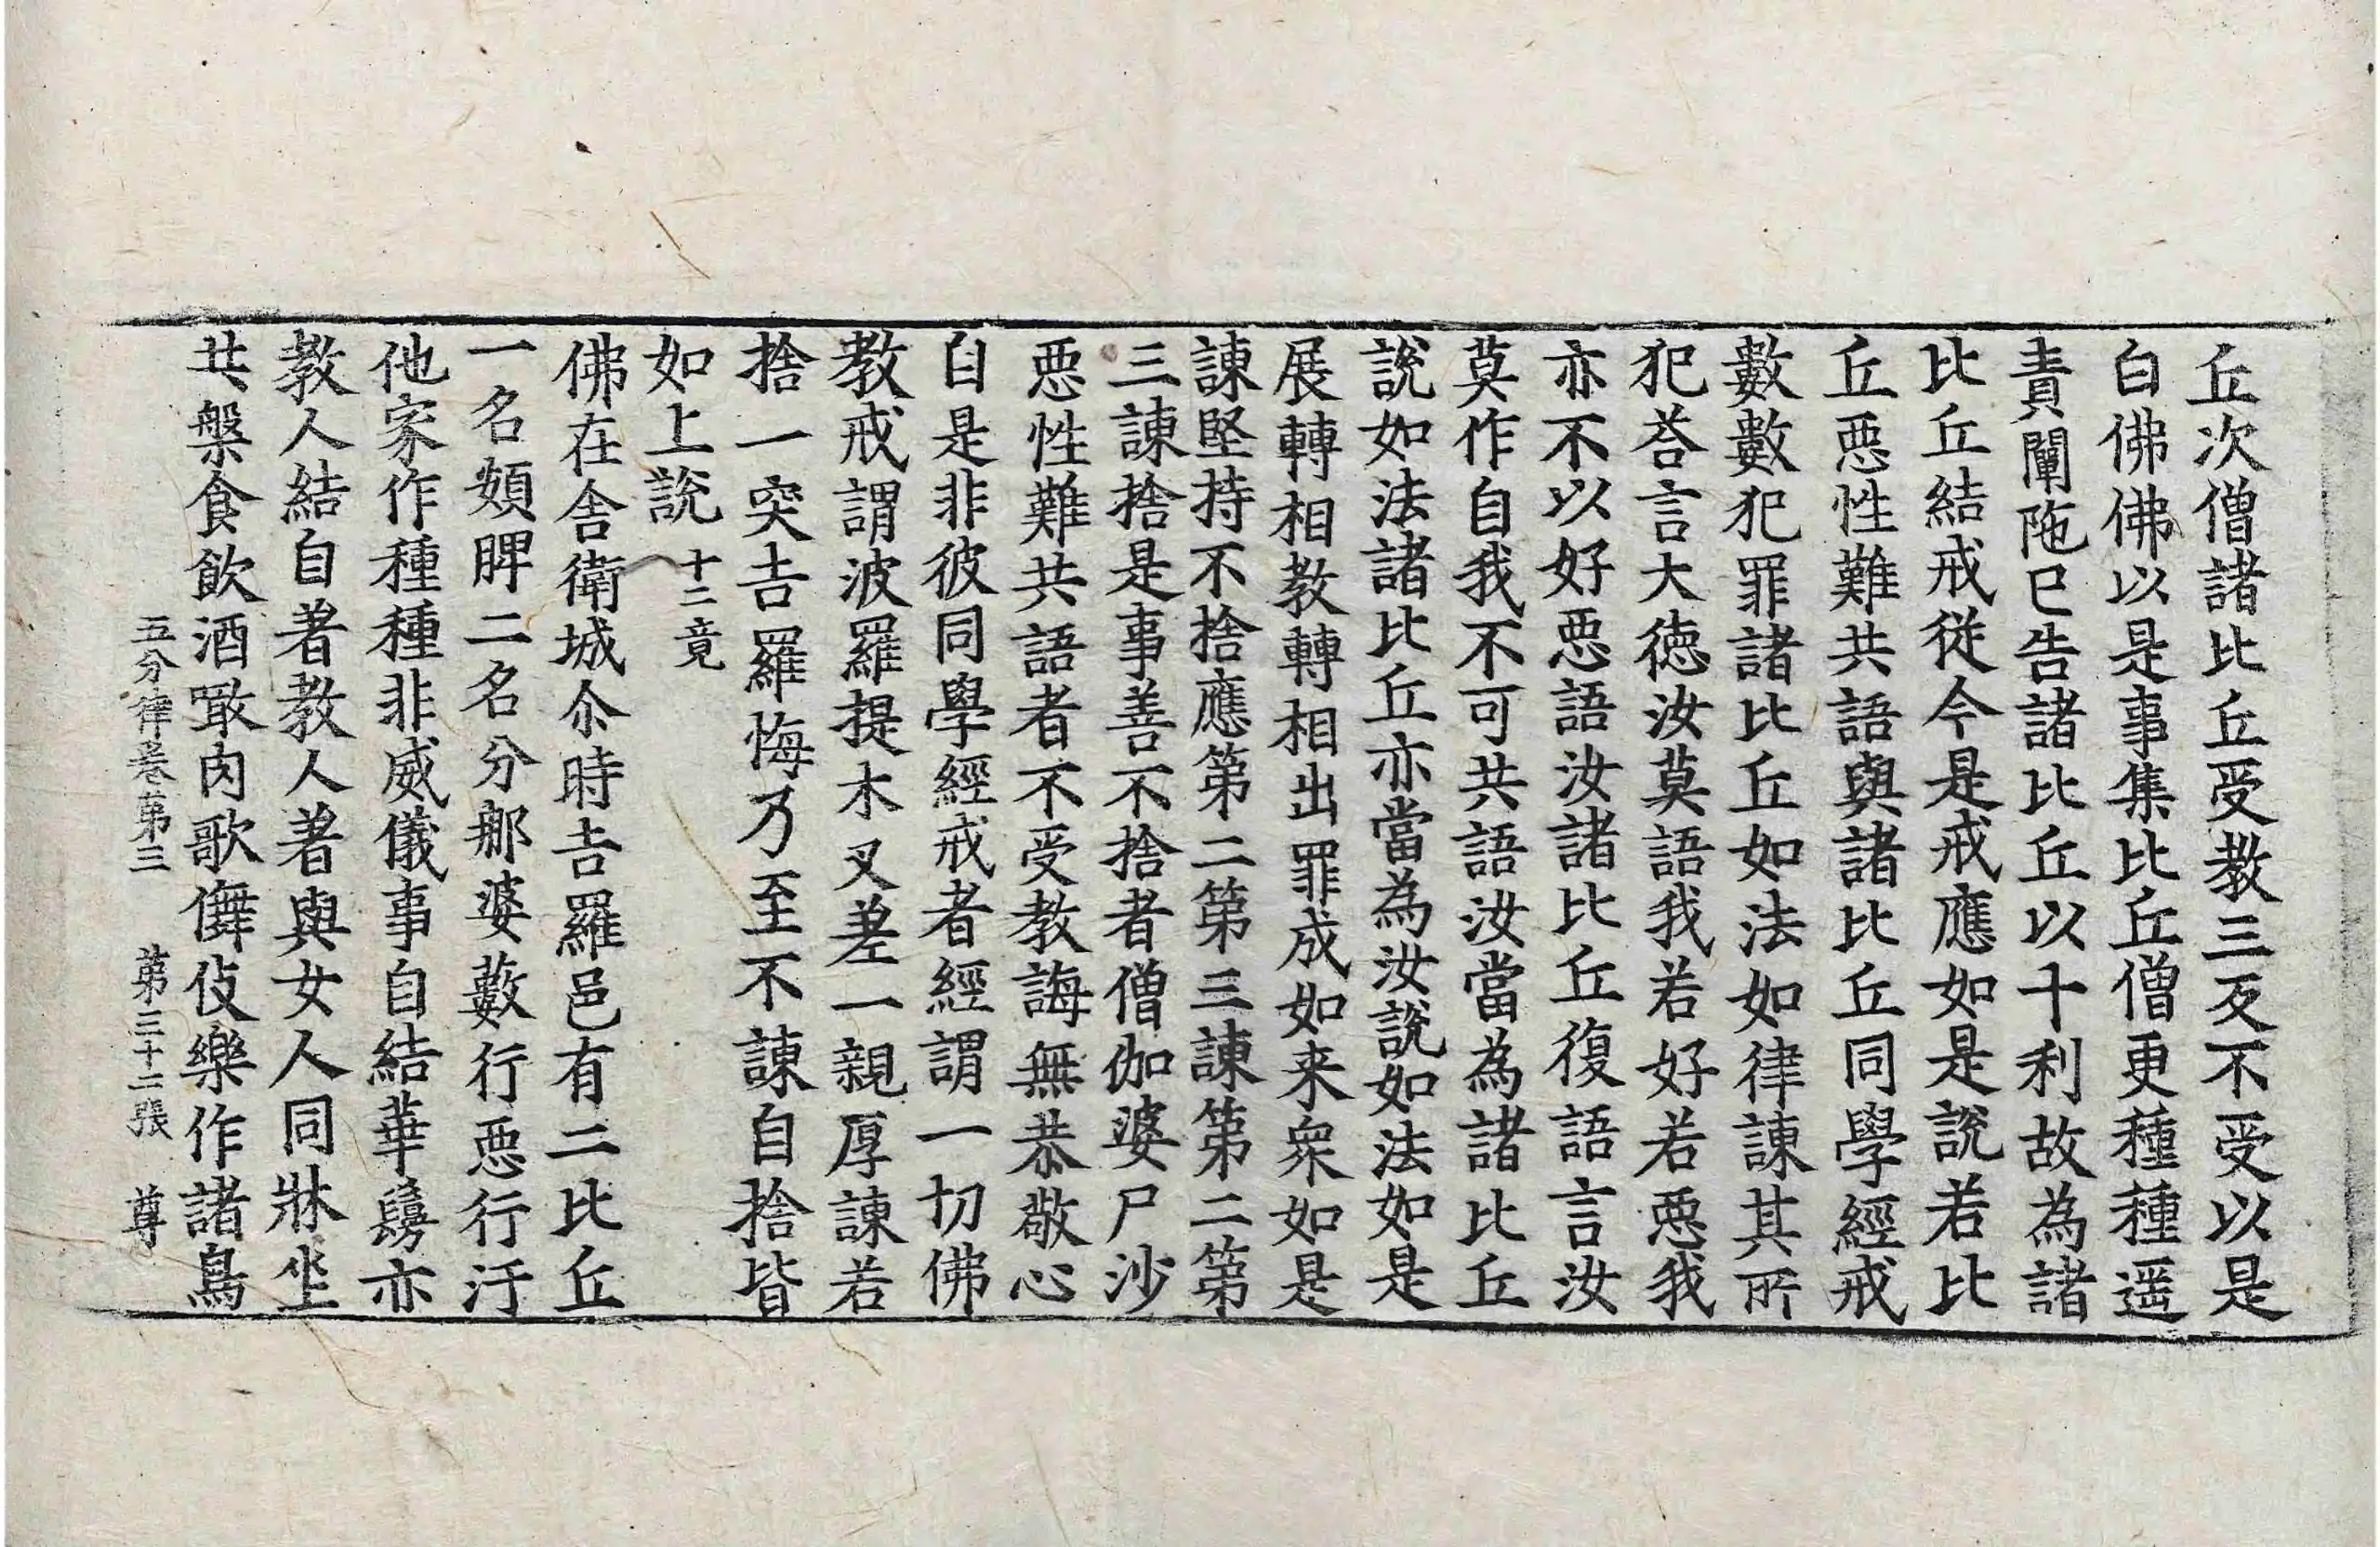 丘次僧諸比丘受教三反不受以是
白佛佛以是事集比丘僧更種種遥
責闡陁已告諸比丘以十利故為諸
比丘結戒従今是戒應如是說若比
丘惡性難共語與諸比丘同學經戒
數數犯罪諸比丘如法如律諫其所
犯荅言大徳汝莫語我若好若惡我
亦不以好惡語汝諸比丘復語言汝
莫作自我不可共語汝當為諸比丘
說如法諸比丘亦當為汝說如法如是
展轉相教轉相出罪成如来衆如是
諫堅持不捨應第二第三諫第二第
三諫捨是事善不捨者僧伽婆尸沙
惡性難共語者不受教誨無恭敬心
自是非彼同學經戒者經謂一切佛
教戒謂波羅提木叉差一親厚諫若
捨一突吉羅悔乃至不諫自捨皆
如上說十二竟
佛在舍衛城尒時吉羅邑有二比丘
一名頞脾二名分那婆藪行惡行汙
他家作種種非威儀事自結華鬘亦
教人結自著教人著與女人同牀坐
共槃食飲酒噉肉歌儛伎樂作諸鳥
五分律卷第三 第三十二張 尊